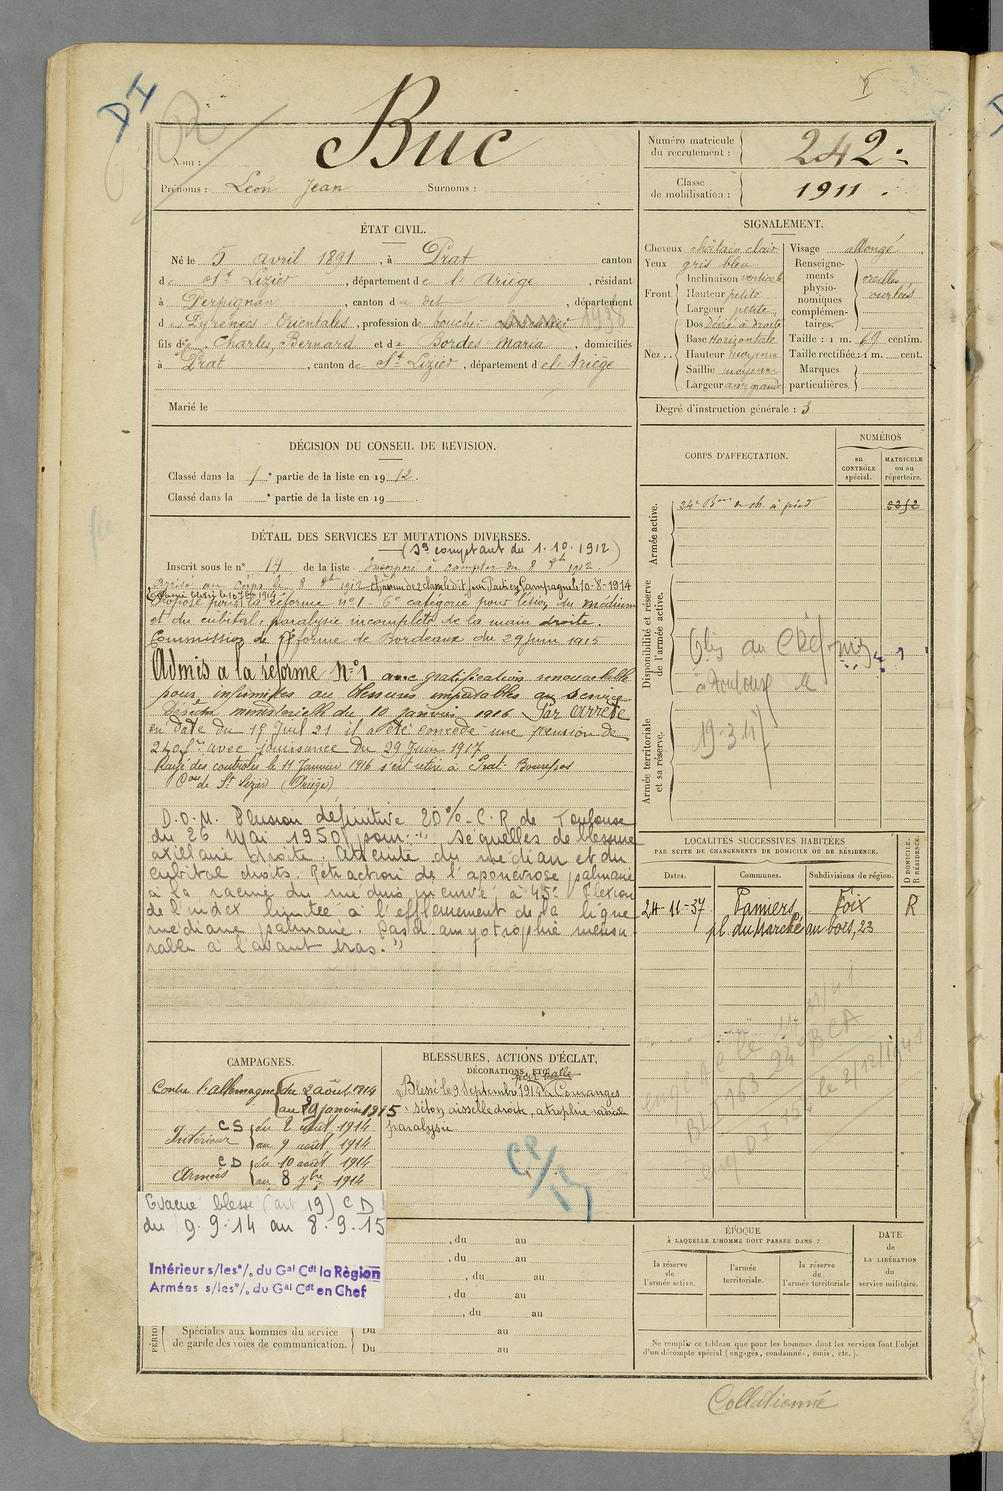 DI
Buc
Nom :
Prénoms : Léon Jean Surnoms :
Numéro matricule du recrutement : 242
Classe de mobilisation : 1911
ÉTAT CIVIL.
Né le 5 avril 1891, à Prat canton
de St Lizier, département de l'Ariège, résidant
à Perpignan, canton du dit, département
des Pyrénées Orientales, profession de boucher 1938
fils de Charles, Bernard et de Bordes Maria, domiciliés
à Prat, canton de St Lizier, département de l'Ariège
Marié le
SIGNALEMENT.
Cheveux châtain clair
Yeux gris bleu
Front. Inclinaison verticale
Hauteur petite
Largeur petite
Nez.. Dos Dévié à droite
Base Horizontale
Hauteur moyenne
Saillie moyenne
Largeur assez grande
Visage allongé
Renseignements physionomiques complémentaires. oreilles ourlées
Taille : 1 m. 69 centim.
Taille rectifiée : 1 m. cent.
Marques particulières.
Degré d'instruction générale : 3
DÉCISION DU CONSEIL DE REVISION.
Classé dans la 1e partie de la liste en 1912.
Classé dans la e partie de la liste en 19 .
CORPS D'AFFECTATION.
NUMÉROS
au CONTRÔLE spécial.
MATRICULE ou au répertoire.
Armée active.
24e Bon de ch. à pied
Disponibilité et réserve de l'armée active.
à Toulouse le
19-3-47
Armée territoriale et sa réserve.
DÉTAIL DES SERVICES ET MUTATIONS DIVERSES.
(Sce comptant du 1.10.1912)
Inscrit sous le n° 14 de la liste Incorporé à compter du 8 8bre 1912
Arrivé au corps le 8 8bre 1912 et chasseur de 2e classe le dit jour Parti en Campagne le 10-8-1914
Proposé pour la réforme n°1 - 6e catégorie pour lésion du médian
et du cubital, paralysie incomplète de la main droite.
Commission de Réforme de Bordeaux du 29 Juin 1915
Admis à la réforme N°1 avec gratification renouvelable
pour infirmités ou blessures imputables au service
Décision ministérielle du 10 janvier 1916 Par arrêté
en date du 19 Juil 21 il a été concédé une pension de
240 frs avec jouissance du 29 Juin 1917
Rayé des contrôles le 11 Janvier 1916 s'est retiré à Prat-Bonrepos
Con de St Lizier (Ariège)
D.O.M. Pension définitive 20% - C.R de Toulouse
du 26 Mai 1950 pour : " Séquelles de blessure
axillaire droite. Atteinte du médian et du
cubital droits. Rétraction de l'aponévrose palmaire
à la racine du médius incurvé à 45°. Flexion
de l'index limitée à l'effleurement de la ligne
médiane palmaire. Pas d'amyotrophie mensu
rable à l'avant bras."
LOCALITÉS SUCCESSIVES HABITÉES
PAR SUITE DE CHANGEMENTS DE DOMICILE OU DE RÉSIDENCE.
Dates. Communes. Subdivisions de région. D DOMICILE. R RÉSIDENCE.
24-11-37 Pamiers, Foix R
pl. du Marché au bois, 23
CAMPAGNES.
Contre l'allemagne du 2 août 1914
CS
Intérieur du 2 août 1914
au 9 août 1914
CD
Armées du 10 août 1914
au 8 7bre 1914
Evacué blessé (art 19) CD
du 9.9.14 au 8.9.15
Intérieur s/les °/. du Gal Cdt la Règion
Armées s/les °/. du Gal Cdt en Chef
BLESSURES, ACTIONS D'ÉCLAT,
DÉCORATIONS, ETC.
par balle
Blessé le 9 Septembre 1914
Séton aisselle droite, atrophie
paralysie
, du au
, du au
, du au
, du au
, du au
Spéciales aux hommes du service de garde des voies de communication. Du au
Du au
ÉPOQUE
À LAQUELLE L'HOMME DOIT PASSER DANS :
la réserve de l'armée active. l'armée territoriale. la réserve de l'armée territoriale
DATE de LA LIBÉRATION du service militaire.
Ne remplir ce tableau que pour les hommes dont les services font l'objet
d'un décompte spécial (engagés, condamnés, omis, etc.).
Collationné